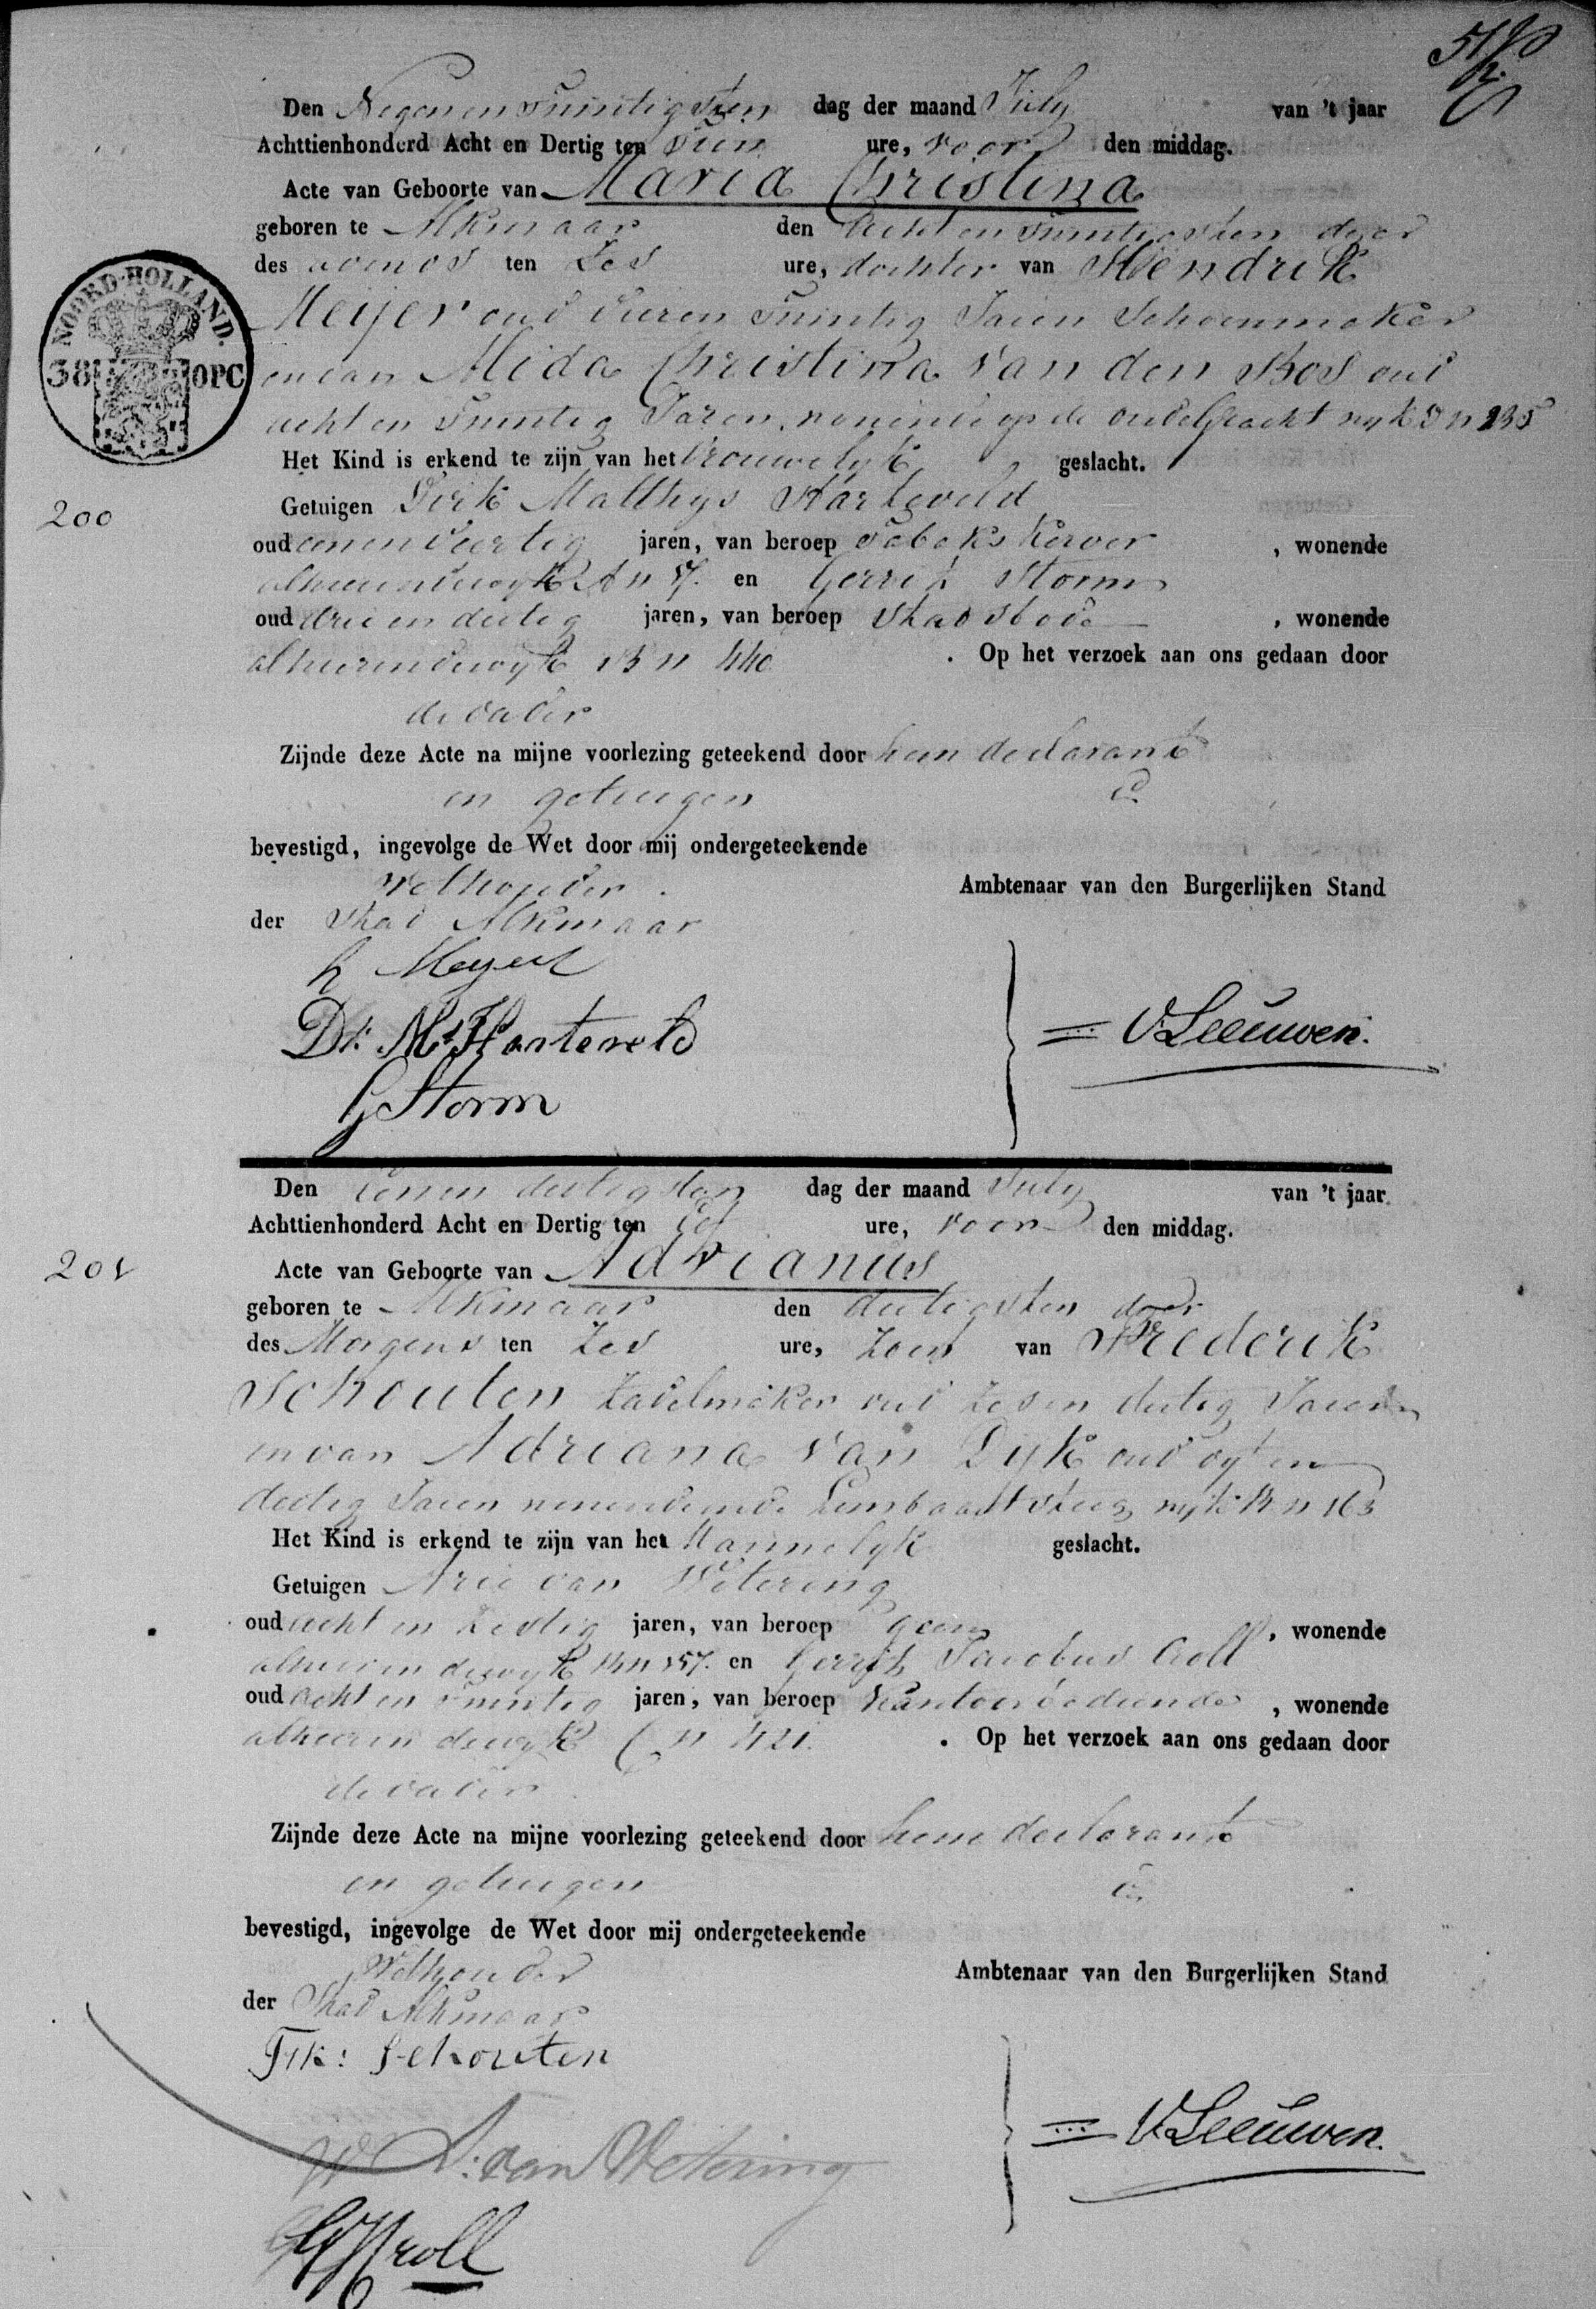 Den Negenentwintigsten dag der maand July van 't jaar
Achttienhonderd Acht en Dertig ten tien ure, voor den middag.
Acte van Geboorte van Maria Christina
geboren te Alkmaar den achtentwintigsten dezer
des avonds ten zes ure, dochter van Hendrik
Meijer oud vieren twintig Jaren Schoenmaker
en van Alida Christina van den Bos oud
acht en twintig Jaren, wonende op de oudeGracht wyk D n 235
NOORD-HOLLAND.
38 OPC
Het Kind is erkend te zijn van het Vrouwelyk geslacht.
200
Getuigen Dirk Matthys Harteveld
oud eenenveertig jaren, van beroep Tabakskerver, wonende
alhier in de wyk A n 57. en Gerrit Storm
oud drie en dertig jaren, van beroep Stadsbode, wonende
alhier in de wyk B n 440. Op het verzoek aan ons gedaan door
de vader
Zijnde deze Acte na mijne voorlezing geteekend door hem declarant
en getuigen
bevestigd, ingevolge de Wet door mij ondergeteekende
Wethouder. Ambtenaar van den Burgerlijken Stand
der Stad Alkmaar
h Meyer
Dk: Ms Harteveld
V.Leeuwen.
G Storm
Den eenen dertigsten dag der maand July van 't jaar
Achttienhonderd Acht en Dertig ten Elf ure, voor den middag.
201
Acte van Geboorte van Adrianus
geboren te Alkmaar den dertigsten dezer
des Morgens ten zes ure, zoon van Frederik
Schouten Zadelmaker oud zes en dertig Jaren
en van Adriana van Dyk oud vyf en
dertig Jaren wonende in de Lombaardsteeg wyk B n 163
Het Kind is erkend te zijn van het Mannelyk geslacht.
Getuigen Arie van Wetering
oud acht en zestig jaren, van beroep geen, wonende
alhier in de wyk B n 157. en Gerrit Jacobus Croll
oud acht en twintig jaren, van beroep Kantoorbediende, wonende
alhier in de wyk C n 421. Op het verzoek aan ons gedaan door
de vader.
Zijnde deze Acte na mijne voorlezing geteekend door hem declarant
en getuigen
bevestigd, ingevolge de Wet door mij ondergeteekende
Wethouder Ambtenaar van den Burgerlijken Stand
der Stad Alkmaar
Frk: Schouten
V.Leeuwen.
A: van Wetering
GJ Kroll